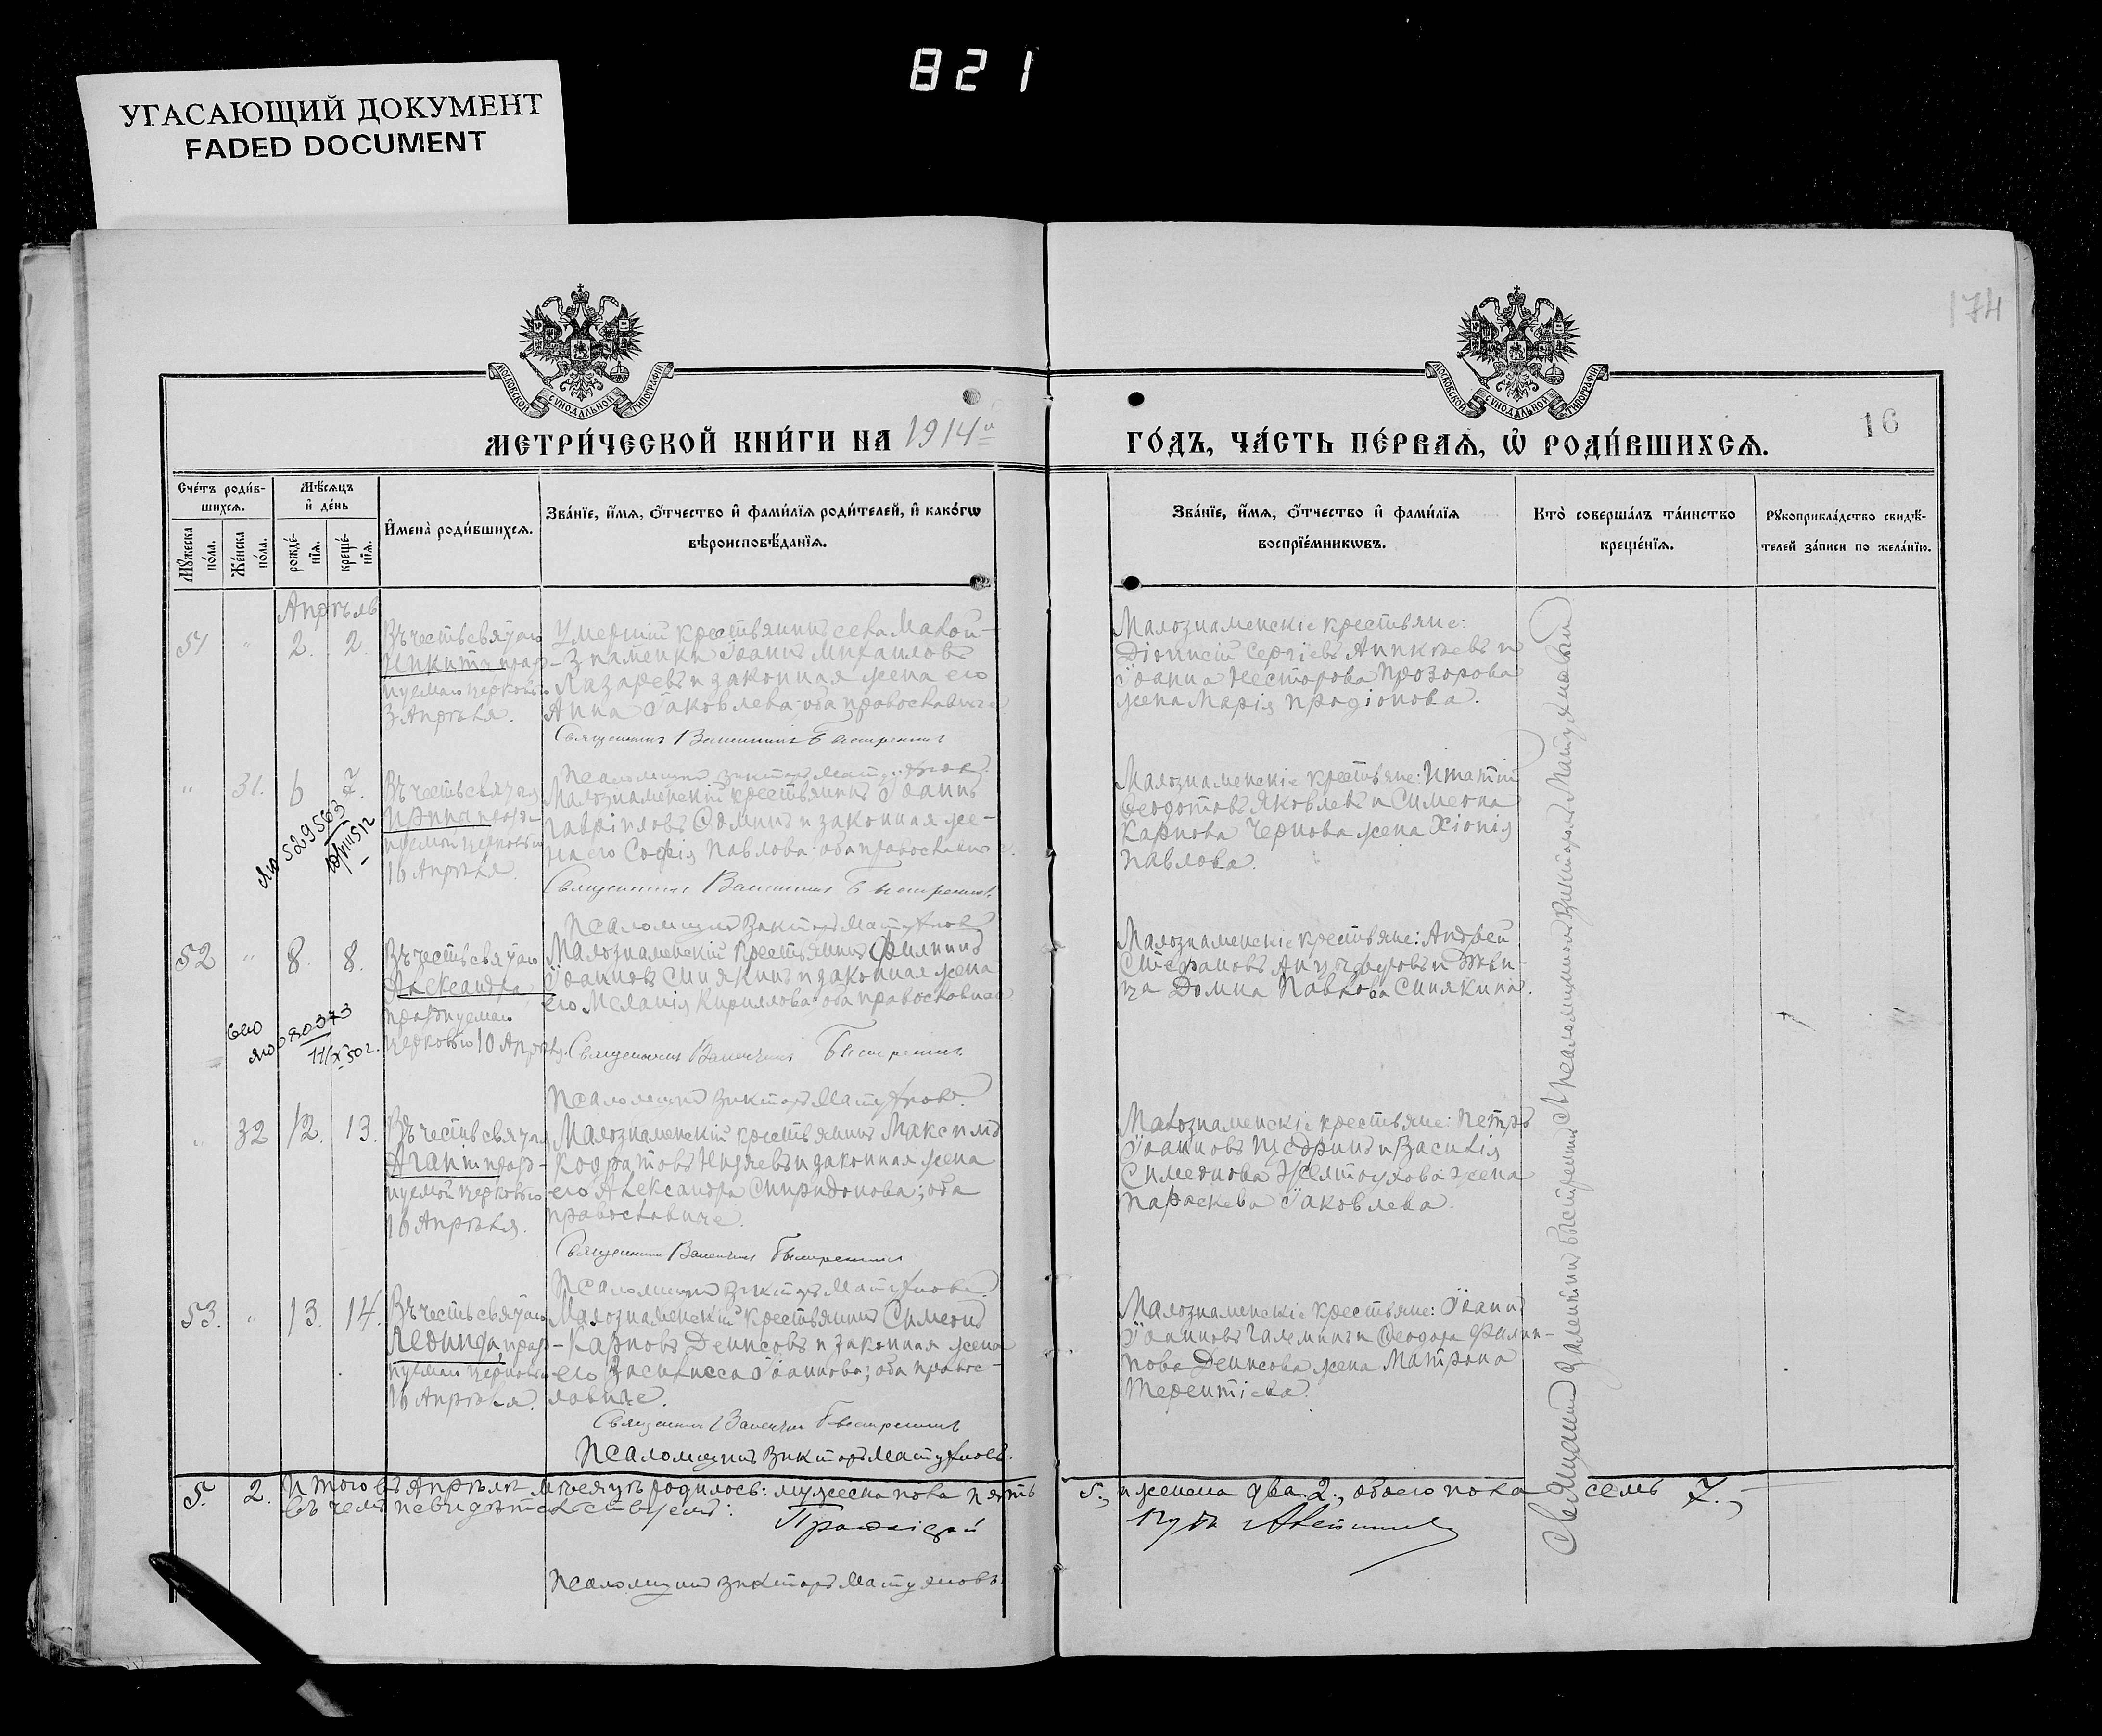 821
УГАСАЮЩИЙ ДОКУМЕНТ
FADED DOCUMENT
174
16
МОСКОВСКОЙ СѴНОДАЛЬНОЙ ТИПОГРАФІИ
МОСКОВСКОЙ СѴНОДАЛЬНОЙ ТИПОГРАФІИ
МЕТРИ́ЧЕСКОЙ КНИ́ГИ НА 1914й
ГО́ДЪ, ЧА́СТЬ ПЕ́РВАѦ, Ѡ҆ РОДИ́ВШИХСѦ.
Сче́тъ роди́в-
шихсѧ.
Мѣ́сѧцъ
и҆ де́нь
Мꙋ́жеска
по́ла.
Же́нска
по́ла.
рожде́-
нїѧ.
креще́-
нїѧ.
И҆мена̀ роди́вшихсѧ.
Зва́нїе, и҆́мѧ, ѻ҆́тчество и҆ фами́лїѧ роди́телей, и҆ како́гѡ
вѣроисповѣ́данїѧ.
Зва́нїе, и҆́мѧ, ѻ҆́тчество и҆ фами́лїѧ
воспрїе́мникѡвъ.
Кто̀ соверша́лъ та́инство
креще́нїѧ.
Рꙋкоприкла́дство свидѣ́-
телей за́писи по жела́нїю.
Апрѣль
51 " 2. 2.
Въ честь святаго
Никиты празд-
нуемаго церковью
3 Апрѣля.
Умершій крестьянинъ села Малой-
-Знаменки Іоаннъ Михаиловъ
Лазаревъ и законная жена его
Анна Іаковлева; оба православные
Священникъ Валентинъ Быстрениъ
Псаломщикъ Викторъ Матухновъ.
Малознаменскіе крестьяне:
Діонисій Сергіевъ Аникѣевъ и
Іоанна Несторова Прозорова
жена Марія Иродіонова.
" 31. 6 7.
Въ честь святыя
Ирины праздн-
уемой церковью
16 Апрѣля.
№ 529563
Малознаменскій крестьянинъ Іоаннъ
Гавріиловъ Сѣминъ и законная же-
на его Софія Павлова; оба православные.
Священникъ Валентинъ Быстрениъ
Псаломщикъ Викторъ Матухновъ
Малознаменскіе крестьяне: Игнатій
Ѳеодотовъ Яковлевъ и Симеона
Карпова Чернова жена Хіонія
Павлова.
52 " 8. 8.
Въ честь святаго
Александра,
празднуемаго
церковью 10 Апрѣля.
Малознаменскій крестьянинъ Филиппъ
Іоанновъ Синякинъ и законная жена
его Меланія Кириллова; оба православные
Священникъ Валентинъ Быстрениъ
Псаломщикъ Викторъ Матухновъ.
Малознаменскіе крестьяне: Андрей
Стефановъ и дѣви-
ца Домна Павлова Синякина.
" 32 12. 13.
Въ честь святыя
Агапіи празд-
нуемой церковью
16 Апрѣля.
Малознаменскій крестьянинъ Максимъ
Кодратовъ и законная жена
его Александра Спиридонова; оба
православные.
Священникъ Валентинъ Быстрениъ
Псаломщикъ Викторъ Матухновъ.
Малознаменскіе крестьяне: Петръ
Іоанновъ Щедринъ и Василія
Симеонова Желтоухова жена
Параскева Іаковлева.
53. " 13. 14.
Въ честь святаго
Леонида, празд-
нуемаго церковью
16 Апрѣля.
Малознаменскій крестьянинъ Симеонъ
Карповъ Денисовъ и законная жена
его Василисса Іоаннова; оба правос-
лавные.
Священникъ Валентинъ Быстрениъ
Псаломщикъ Викторъ Матухновъ.
Малознаменскіе крестьяне: Іоаннъ
Іоанновъ Галеминъ и Ѳеодора Филип-
пова Денисова жена Матрона
Терентіева.
Священникъ Валентинъ Быстрениъ Псаломщикъ Викторъ Матухновъ
5. 2. Итого въ Апрѣлѣ мѣсяцѣ родилось: мужеска пола пять 5., и женска два 2., обоего пола семь 7.,
въ чемъ и свидѣтельствуемъ:
Псаломщикъ Викторъ Матухновъ.